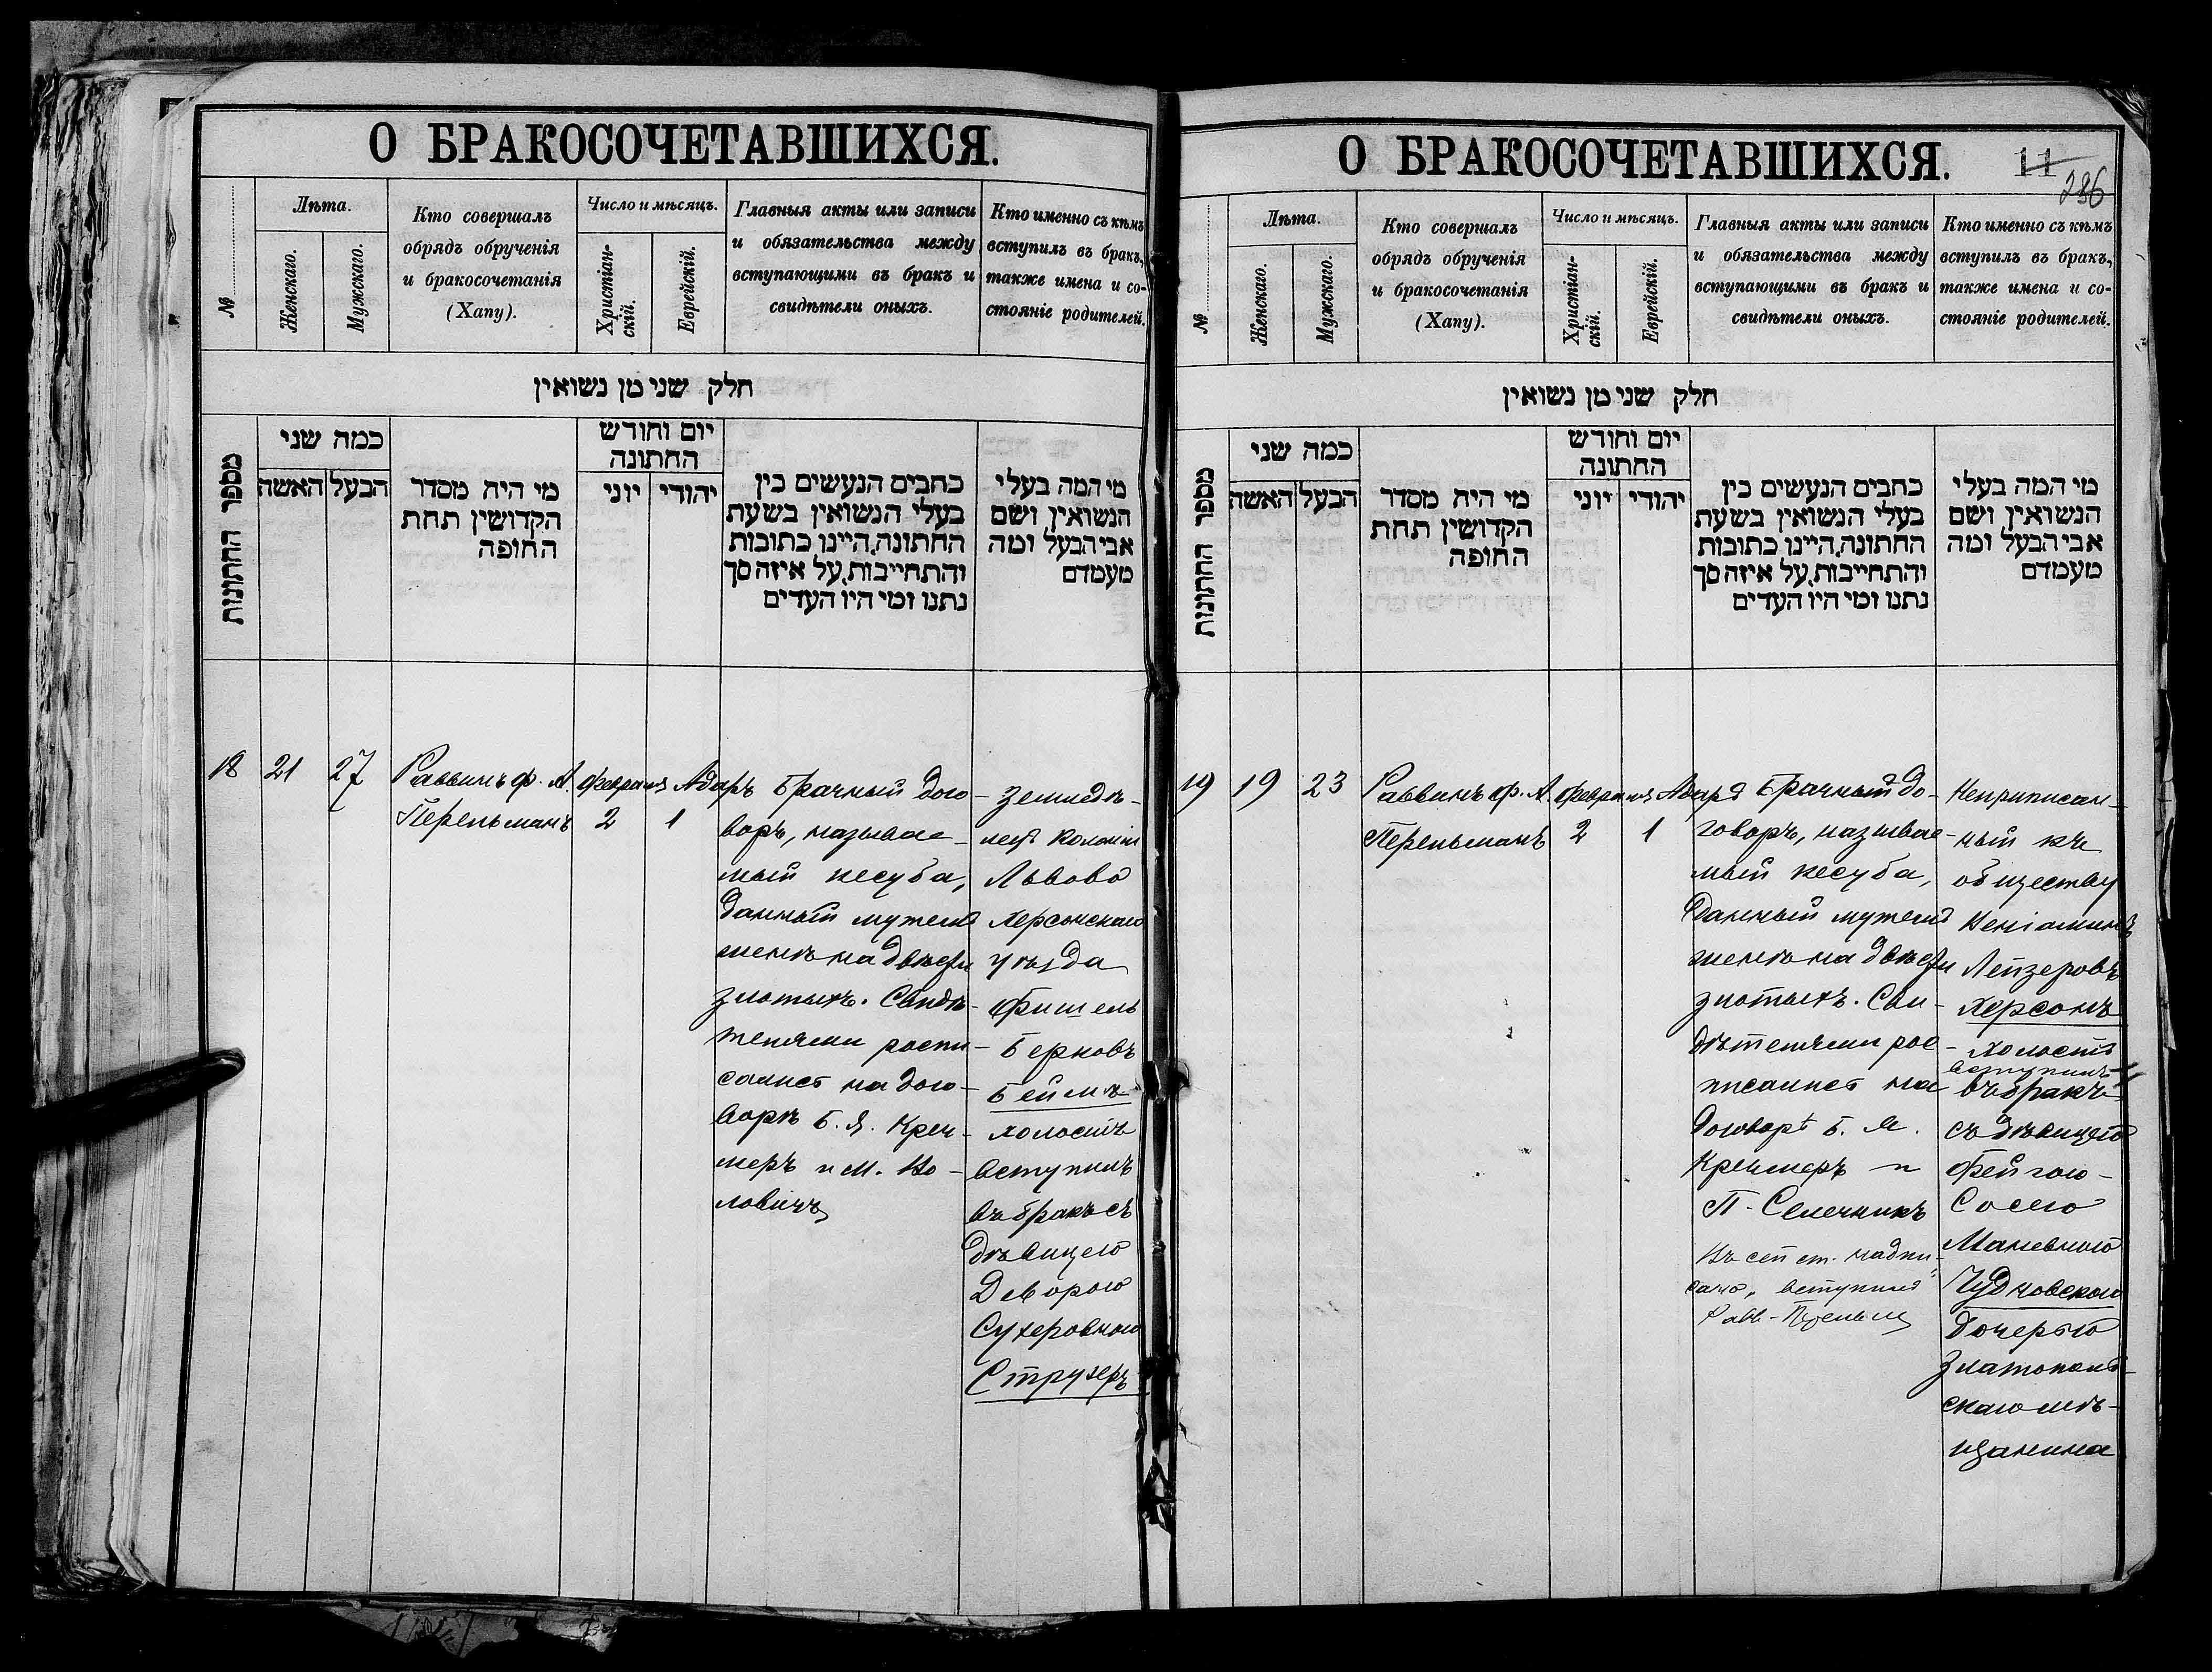 О БРАКОСОЧЕТАВШИХСЯ.
№
Лѣта.
Женскаго.
Мужскаго.
Кто совершалъ
обрядъ обрученія
и бракосочетанія
(Хапу).
Число и мѣсяцъ.
Христіан-
скій.
Еврейскій.
Главныя акты или записи
и обязательства между
вступающими въ бракъ и
свидѣтели оныхъ.
Кто именно съ кѣмъ
вступилъ въ бракъ,
также имена и со-
стояніе родителей.
חלק שני מן נשואין
מספר החתונות
כמה שני
האשה
הבעל
מי היה מסדר
הקדושין תחת
החופה
יום וחודש
החתונה
יוני
יהודי
כתבים הנעשים בין
בעלי הנשואין בשעת
החתונה, היינו כתובות
והתחייבות, על איזה סך
נתנו ומי היו העדים
מי המה בעלי
הנשואין ושם
אבי הבעל ומה
מעמדם
18
21
27
Раввинъ ф. А.
Перельманъ
Февраля
2
Адаръ
1
Брачный дого-
воръ, называе-
мый кесуба,
данный мужемъ
женѣ на двѣсти
злотыхъ. Свидѣ-
телями распи-
сались на дого-
ворѣ Б. Я. Крем-
меръ и М. Во-
ловичъ
Земледѣ-
лецъ колоніи
Львово
Херсонскаго
уѣзда
Фишель
Берковъ
Беймъ
холостъ
вступилъ
въ бракъ съ
дѣвицею
Деворою
Сухеровною
Струхеръ
О БРАКОСОЧЕТАВШИХСЯ.
11
286
№
Лѣта.
Женскаго.
Мужскаго.
Кто совершалъ
обрядъ обрученія
и бракосочетанія
(Хапу).
Число и мѣсяцъ.
Христіан-
скій.
Еврейскій.
Главныя акты или записи
и обязательства между
вступающими въ бракъ и
свидѣтели оныхъ.
Кто именно съ кѣмъ
вступилъ въ бракъ,
также имена и со-
стояніе родителей.
חלק שני מן נשואין
מספר החתונות
כמה שני
האשה
הבעל
מי היה מסדר
הקדושין תחת
החופה
יום וחודש
החתונה
יוני
יהודי
כתבים הנעשים בין
בעלי הנשואין בשעת
החתונה, היינו כתובות
והתחייבות, על איזה סך
נתנו ומי היו העדים
מי המה בעלי
הנשואין ושם
אבי הבעל ומה
מעמדם
19
19
23
Раввинъ ф. А.
Перельманъ
Февраля
2
Адаръ
1
Брачный до-
говоръ, называе-
мый кесуба,
данный мужемъ
женѣ на двѣсти
злотыхъ. Сви-
дѣтелями рас-
писались на
договорѣ Б. Я.
Кремеръ и
П. Селечникъ
Въ сей ст. надпи-
сано, "вступилъ"
Равв. Перельм
Неприписан-
ный къ
обществу
Веніаминъ
Лейзеровъ
Херсонъ
холостъ
вступилъ
въ бракъ
съ дѣвицею
Фейгою-
Сосею
Маневною
Чудновскою
дочерью
Златополь-
скаго мѣ-
щанина